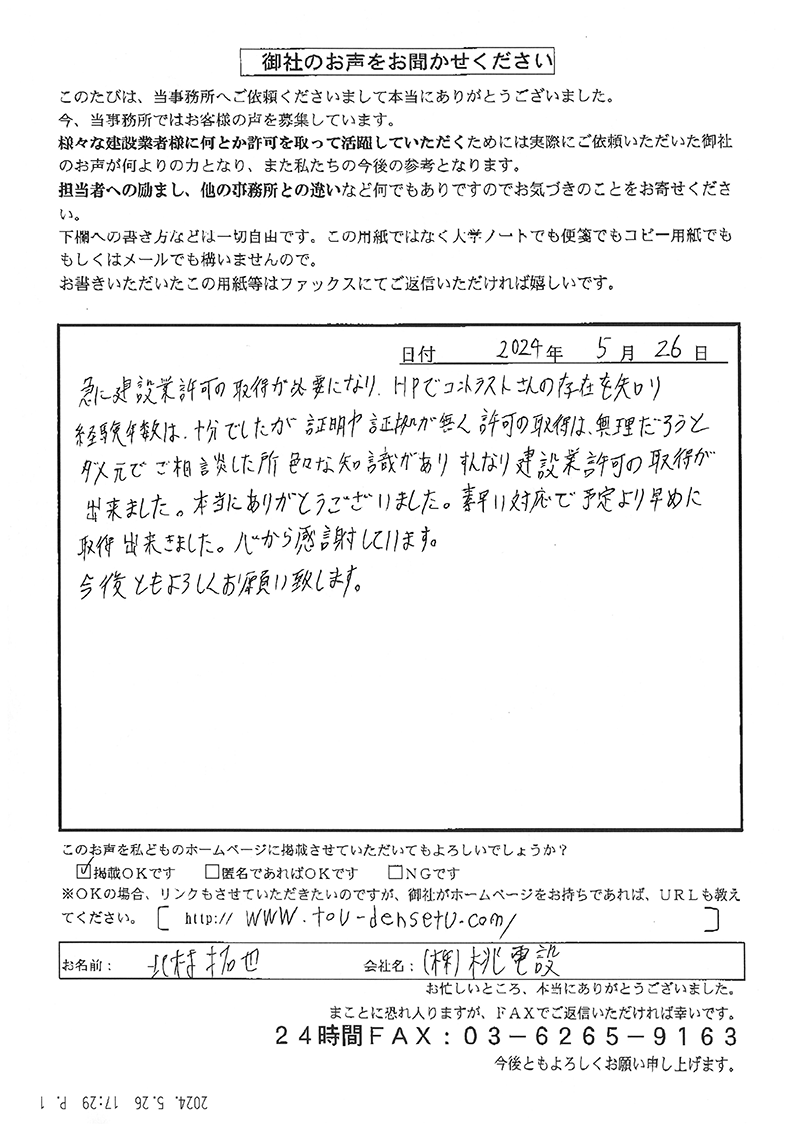 御社のお声をお聞かせください
このたびは、当事務所へご依頼くださいまして本当にありがとうございました。
今、当事務所ではお客様の声を募集しています。
様々な建設業者様に何とか許可を取って活躍していただくためには実際にご依頼いただいた御社
のお声が何よりの力となり、また私たちの今後の参考となります。
担当者への励まし、他の事務所との違いなど何でもありですのでお気づきのことをお寄せくださ
い。
下欄への書き方などは一切自由です。この用紙ではなく大学ノートでも便箋でもコピー用紙でも
もしくはメールでも構いませんので。
お書きいただいたこの用紙等はファックスにてご返信いただければ嬉しいです。
日付 2024年 5月 26日
急に建設業許可の取得が必要になり、HPでコントラストさんの存在を知り
経験年数は、十分でしたが証明や証拠が無く許可の取得は、無理だろうと
ダメ元でご相談した所色々な知識がありすんなり建設業許可の取得が
出来ました。本当にありがとうございました。素早い対応で予定より早めに
取得出来きました。心から感謝しています。
今後ともよろしくお願い致します。
このお声を私どものホームページに掲載させていただいてもよろしいでしょうか？
☑掲載ＯＫです □匿名であればＯＫです □ＮＧです
※ＯＫの場合、リンクもさせていただきたいのですが、御社がホームページをお持ちであれば、ＵＲＬも教え
てください。［ http:// www.tou-densetu.com/ ］
お名前： 北村拓也 会社名： (株)桃電設
お忙しいところ、本当にありがとうございました。
まことに恐れ入りますが、ＦＡＸでご返信いただければ幸いです。
２４時間ＦＡＸ：０３－６２６５－９１６３
今後ともよろしくお願い申し上げます。
2024. 5.26 17:29 P. 1